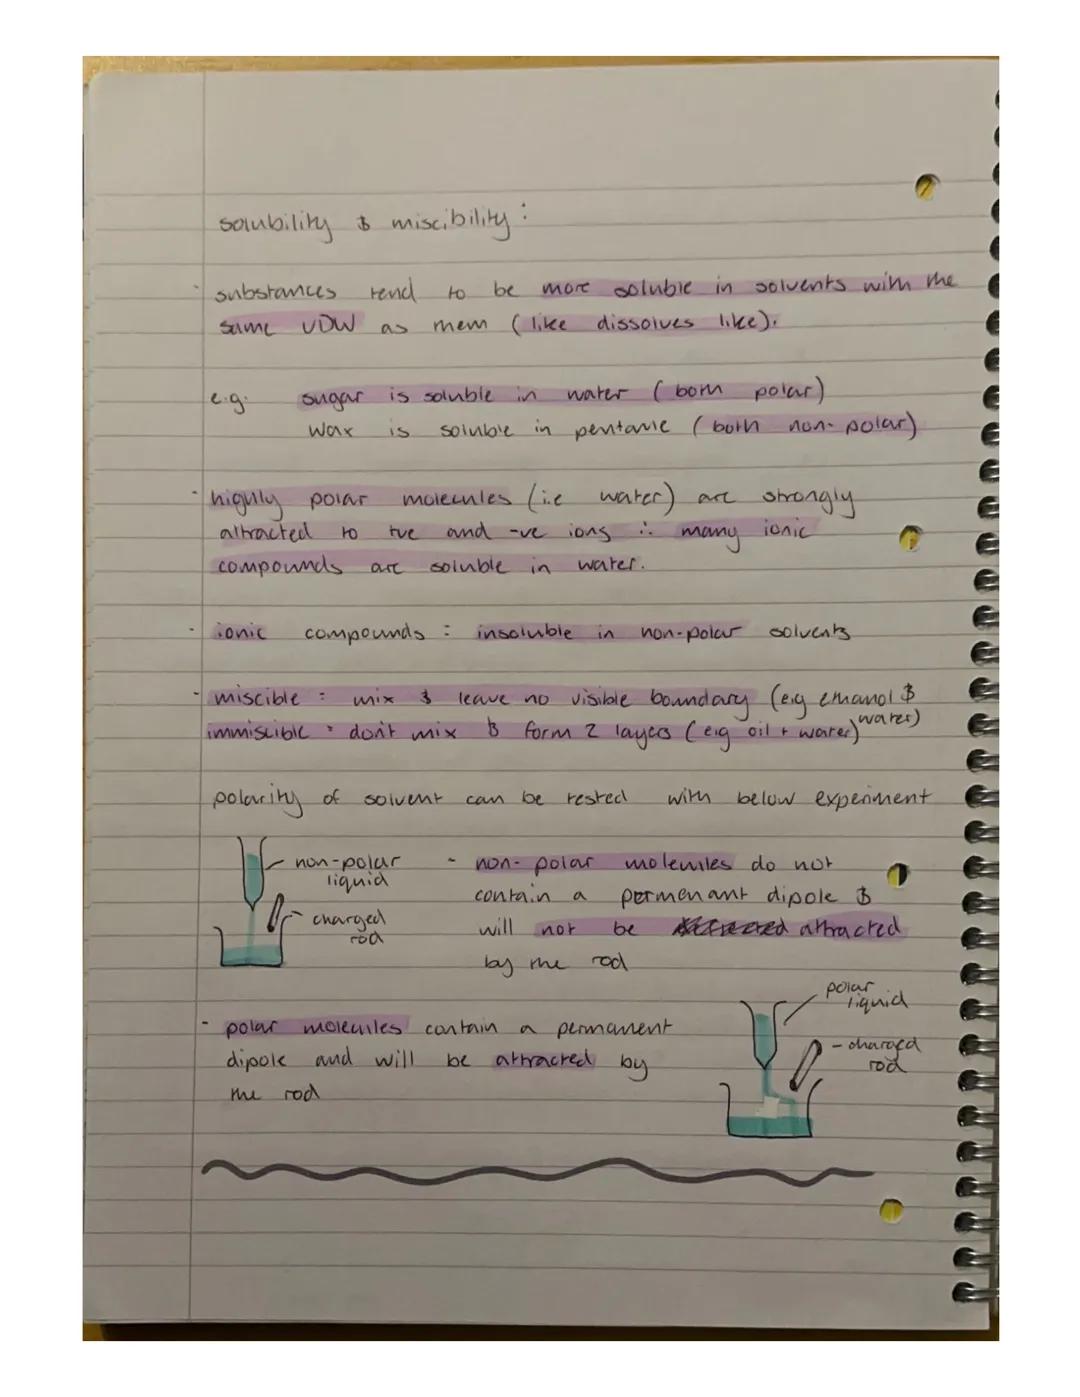 solubility & miscibility:
- substances tend to be more soluble in solvents with the
same VDW as them (like dissolves like).
e.g. sugar is soluble in water (both polar)
wax is soluble in pentane (both non-polar)
- highly polar molecules (i.e water) are strongly
attracted to +ve and -ve ions ∴ many ionic
compounds are soluble in water.
- ionic compounds : insoluble in non-polar solvents
- miscible : mix & leave no visible boundary (eg ethanol &
water)
immiscible : don't mix & form 2 layers (eg oil + water)
polarity of solvent can be tested with below experiment
non-polar
liquid
charged
rod
- non-polar molecules do not
contain a permenant dipole &
will not be attracted
by the rod
- polar molecules contain a permanent
dipole and will be attracted by
the rod
polar
liquid
- charged
rod